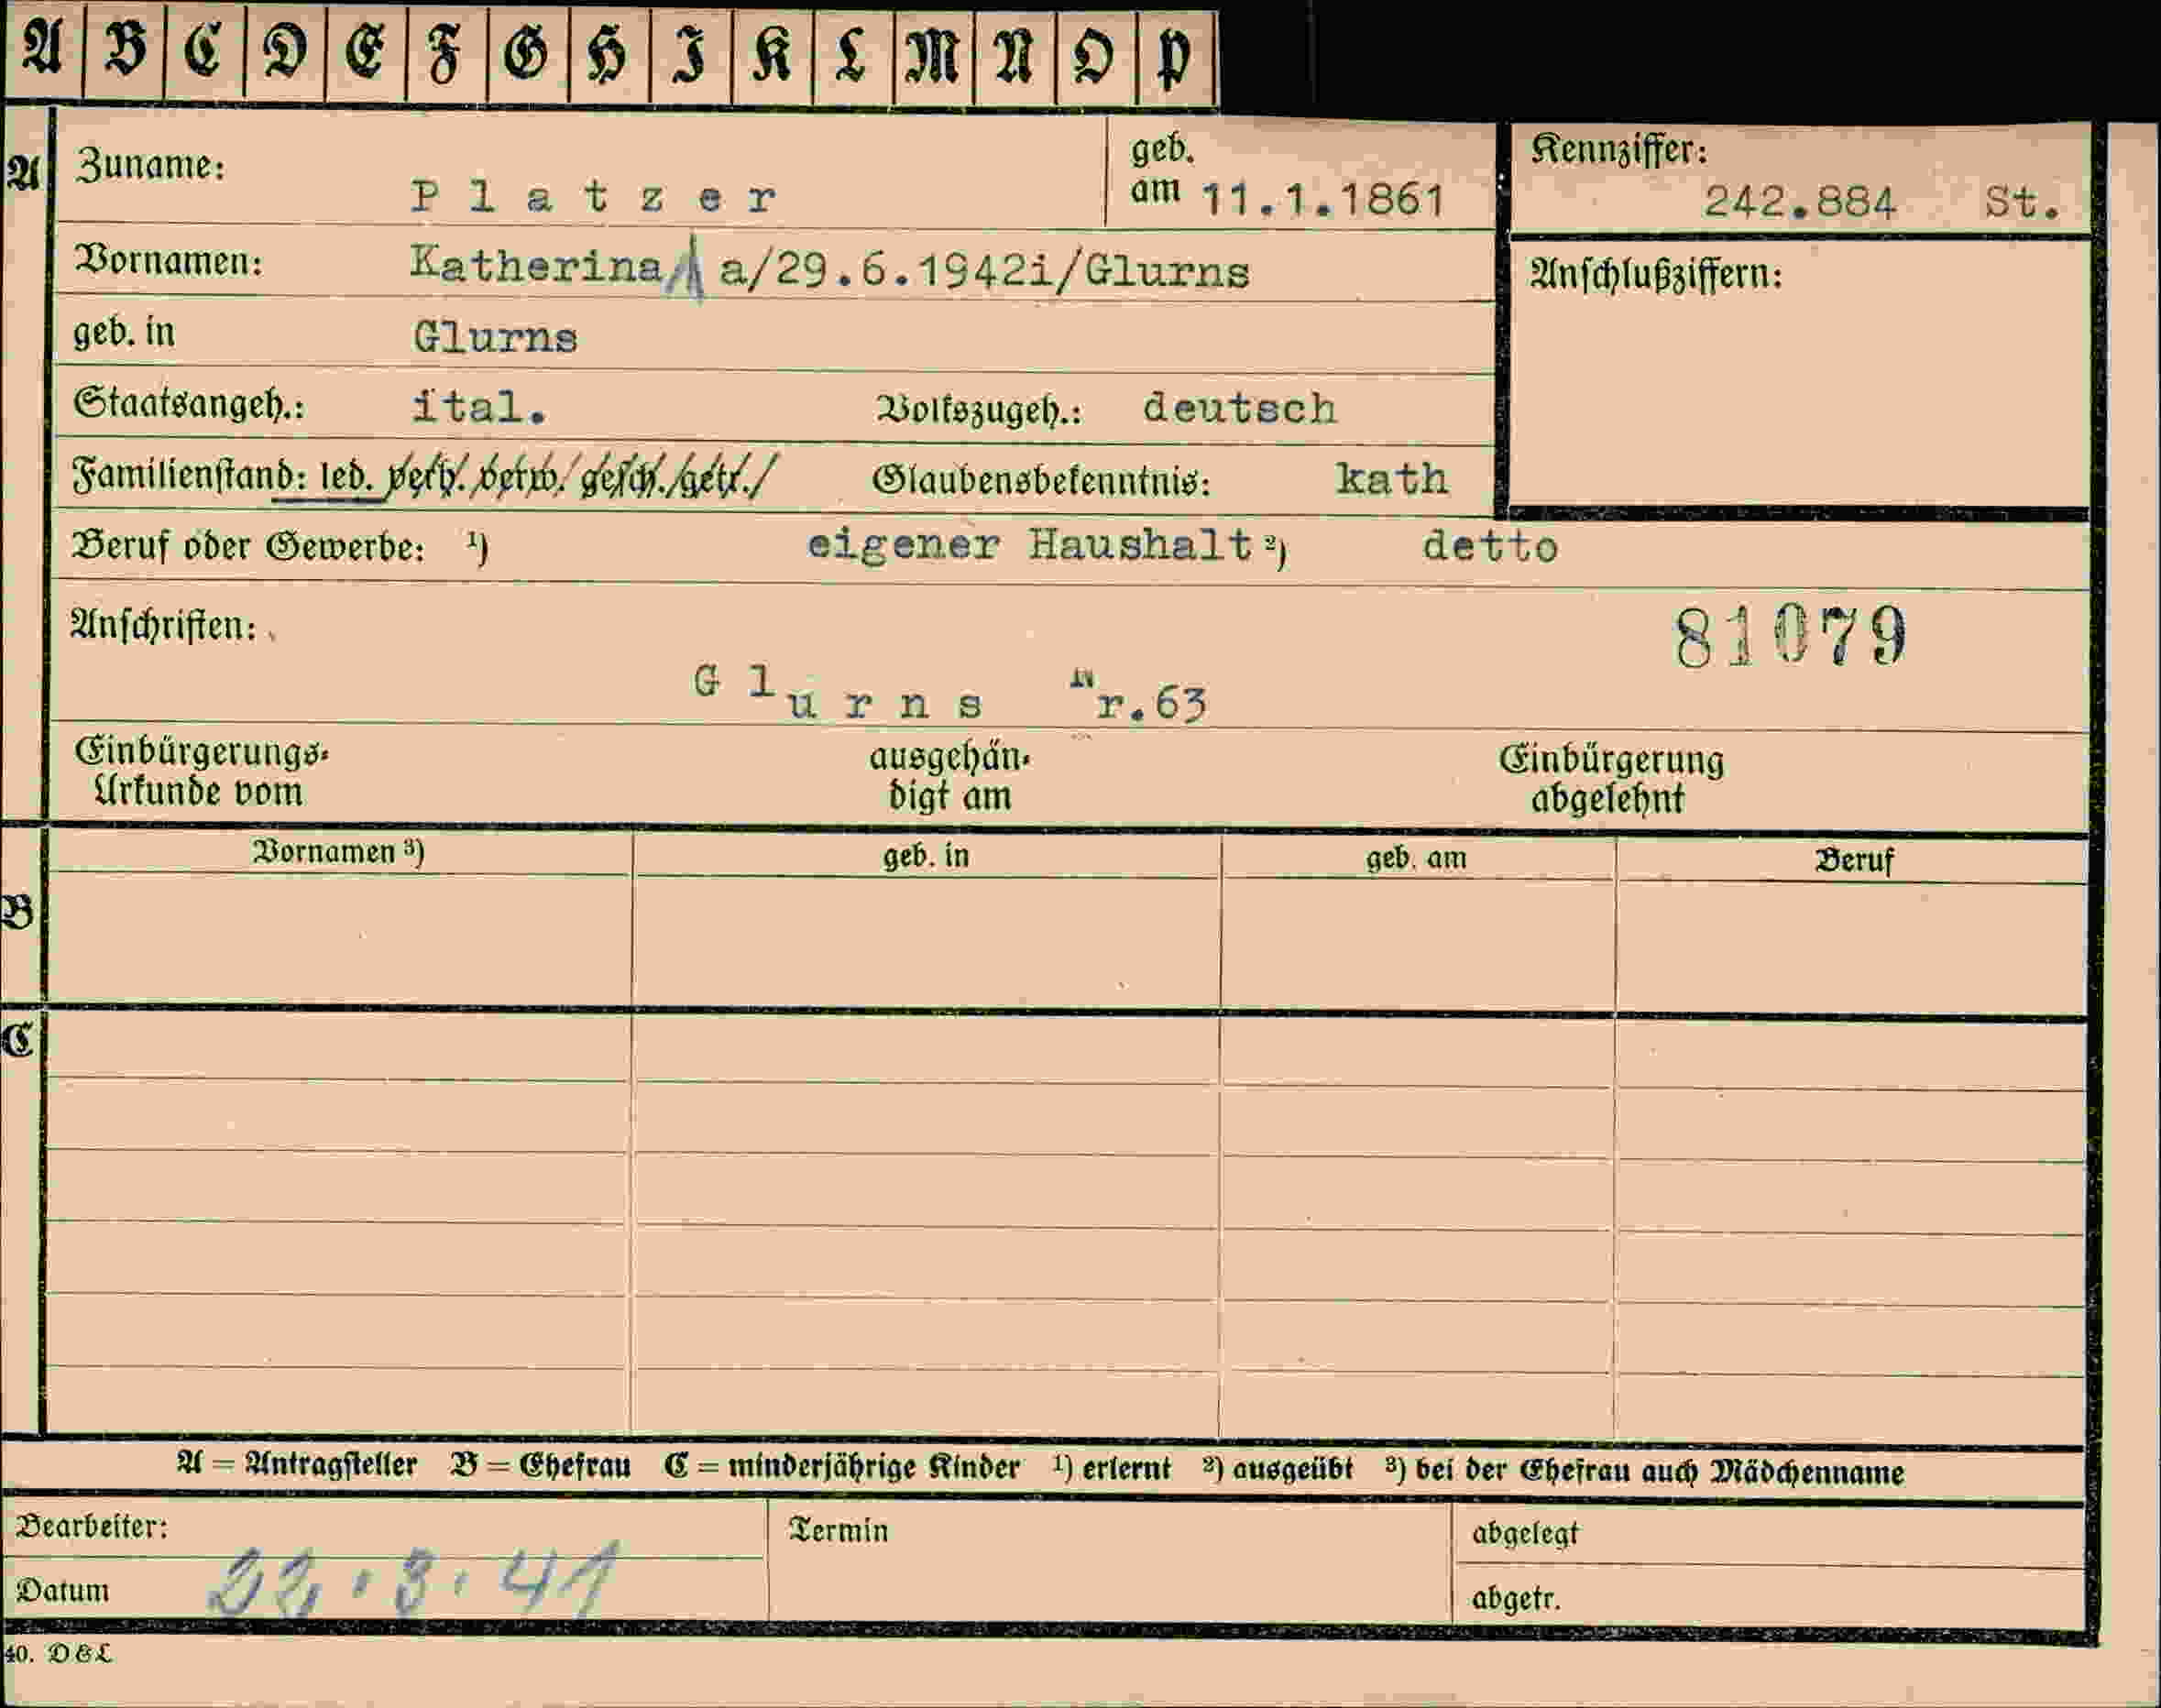 A B C D E F G H I K L M N O P
A
Zuname: Platzer geb. am 11.1.1861
Kennziffer: 242.884 St.
Vornamen: Katherina a/29.6.1942i/Glurns
Anschlußziffern:
geb. in Glurns
Staatsangeh.: ital. Volkszugeh.: deutsch
Familienstand: led. verh. verw. gesch./getr./ Glaubensbekenntnis: kath
Beruf oder Gewerbe: ¹) eigener Haushalt ²) detto
Anschriften:
81079
Glurns Nr.63
Einbürgerungs-Urkunde vom ausgehändigt am Einbürgerung abgelehnt
B
Vornamen ³) geb. in geb. am Beruf
C
A = Antragsteller B = Ehefrau C = minderjährige Kinder ¹) erlernt ²) ausgeübt ³) bei der Ehefrau auch Mädchenname
Bearbeiter: Termin abgelegt
Datum 22.3.41 abgetr.
40. D&L